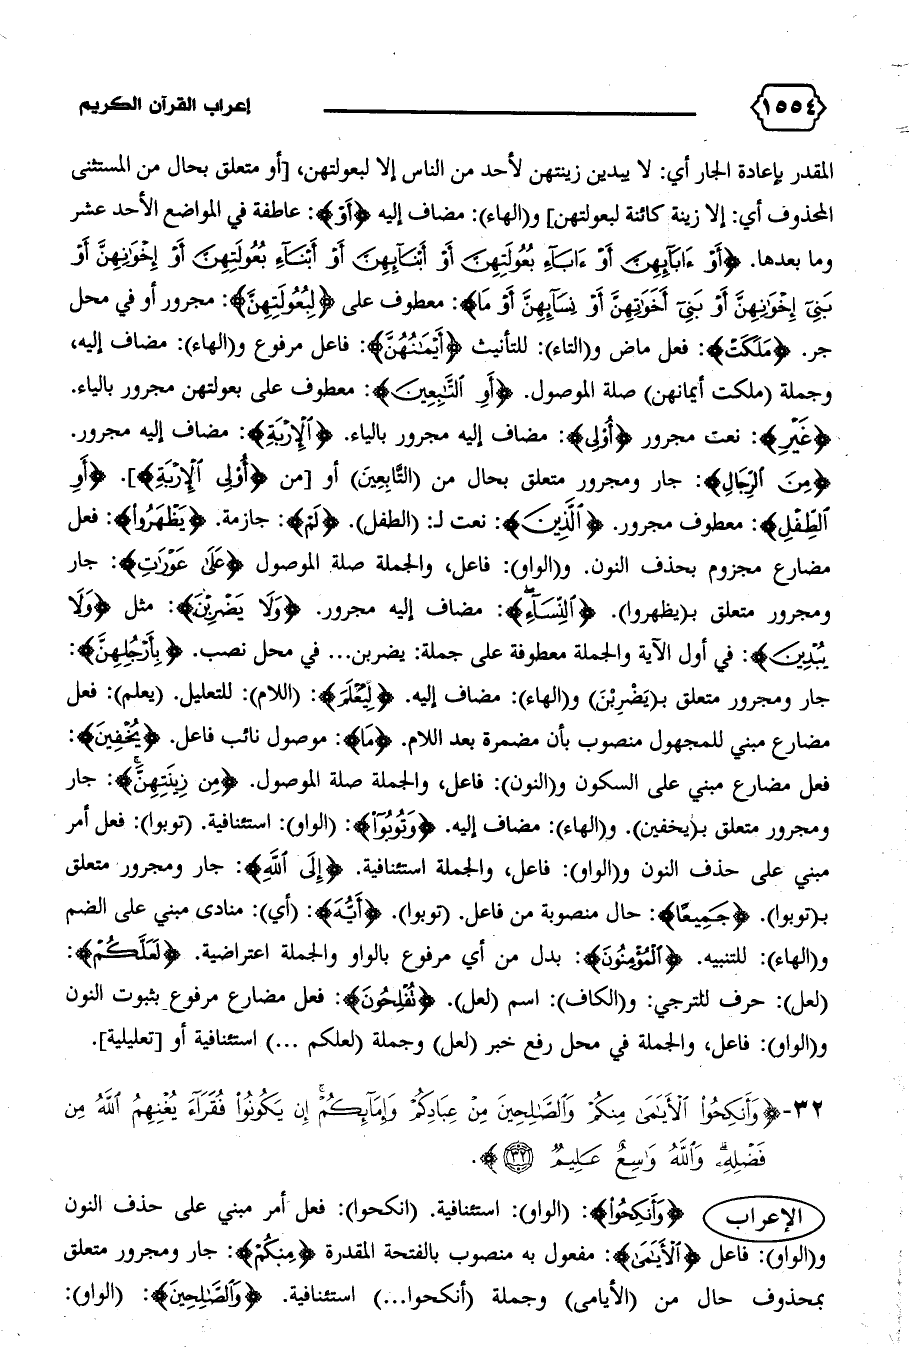 ١٥٥٤ إعراب القرآن الكريم
المقدر بإعادة الجار أي: لا يبدين زينتهن لأحد من الناس إلا لبعولتهن، [أو متعلق بحال من المستثنى
المحذوف أي: إلا زينة كائنة لبعولتهن] و(الهاء): مضاف إليه ﴿أَوْ﴾: عاطفة في المواضع الأحد عشر
وما بعدها. ﴿أَوْ ءَابَآئِهِنَّ أَوْ ءَابَآءِ بُعُولَتِهِنَّ أَوْ أَبْنَآئِهِنَّ أَوْ أَبْنَآءِ بُعُولَتِهِنَّ أَوْ إِخْوَٰنِهِنَّ أَوْ
بَنِىٓ إِخْوَٰنِهِنَّ أَوْ بَنِىٓ أَخَوَٰتِهِنَّ أَوْ نِسَآئِهِنَّ أَوْ مَا﴾: معطوف على ﴿لِبُعُولَتِهِنَّ﴾: مجرور أو في محل
جر. ﴿مَلَكَتْ﴾: فعل ماض و(التاء): للتأنيث ﴿أَيْمَٰنُهُنَّ﴾: فاعل مرفوع و(الهاء): مضاف إليه،
وجملة (ملكت أيمانهن) صلة الموصول. ﴿أَوِ ٱلتَّٰبِعِينَ﴾: معطوف على بعولتهن مجرور بالياء.
﴿غَيْرِ﴾: نعت مجرور ﴿أُوْلِى﴾: مضاف إليه مجرور بالياء. ﴿ٱلْإِرْبَةِ﴾: مضاف إليه مجرور.
﴿مِنَ ٱلرِّجَالِ﴾: جار ومجرور متعلق بحال من (التَّابِعِينَ) أو [من ﴿أُوْلِى ٱلْإِرْبَةِ﴾]. ﴿أَوِ
ٱلطِّفْلِ﴾: معطوف مجرور. ﴿ٱلَّذِينَ﴾: نعت لـ: (الطفل). ﴿لَمْ﴾: جازمة. ﴿يَظْهَرُوا۟﴾: فعل
مضارع مجزوم بحذف النون. و(الواو): فاعل، والجملة صلة الموصول ﴿عَلَىٰ عَوْرَٰتِ﴾: جار
ومجرور متعلق بـ(يظهروا). ﴿ٱلنِّسَآءِ﴾: مضاف إليه مجرور. ﴿وَلَا يَضْرِبْنَ﴾: مثل ﴿وَلَا
يُبْدِينَ﴾: في أول الآية والجملة معطوفة على جملة: يضربن... في محل نصب. ﴿بِأَرْجُلِهِنَّ﴾:
جار ومجرور متعلق بـ(يَضْرِبْنَ) و(الهاء): مضاف إليه. ﴿لِيُعْلَمَ﴾: (اللام): للتعليل. (يعلم): فعل
مضارع مبني للمجهول منصوب بأن مضمرة بعد اللام. ﴿مَا﴾: موصول نائب فاعل. ﴿يُخْفِينَ﴾:
فعل مضارع مبني على السكون و(النون): فاعل، والجملة صلة الموصول. ﴿مِن زِينَتِهِنَّ﴾: جار
ومجرور متعلق بـ(يخفين). و(الهاء): مضاف إليه. ﴿وَتُوبُوٓا۟﴾: (الواو): استئنافية. (توبوا): فعل أمر
مبني على حذف النون و(الواو): فاعل، والجملة استئنافية. ﴿إِلَى ٱللَّهِ﴾: جار ومجرور متعلق
بـ(توبوا). ﴿جَمِيعًا﴾: حال منصوبة من فاعل. (توبوا). ﴿أَيُّهَ﴾: (أي): منادى مبني على الضم
و(الهاء): للتنبيه. ﴿ٱلْمُؤْمِنُونَ﴾: بدل من أي مرفوع بالواو والجملة اعتراضية. ﴿لَعَلَّكُمْ﴾:
(لعل): حرف للترجي: و(الكاف): اسم (لعل). ﴿تُفْلِحُونَ﴾: فعل مضارع مرفوع بثبوت النون
و(الواو): فاعل، والجملة في محل رفع خبر (لعل) وجملة (لعلكم ...) استئنافية أو [تعليلية].
٣٢-﴿وَأَنكِحُوا۟ ٱلْأَيَٰمَىٰ مِنكُمْ وَٱلصَّٰلِحِينَ مِنْ عِبَادِكُمْ وَإِمَآئِكُمْ ۚ إِن يَكُونُوا۟ فُقَرَآءَ يُغْنِهِمُ ٱللَّهُ مِن
فَضْلِهِۦ ۗ وَٱللَّهُ وَٰسِعٌ عَلِيمٌ ٣٢﴾.
الإعراب ﴿وَأَنكِحُوا۟﴾: (الواو): استئنافية. (انكحوا): فعل أمر مبني على حذف النون
و(الواو): فاعل ﴿ٱلْأَيَٰمَىٰ﴾: مفعول به منصوب بالفتحة المقدرة ﴿مِنكُمْ﴾: جار ومجرور متعلق
بمحذوف حال من (الأيامى) وجملة (أنكحوا...) استئنافية. ﴿وَٱلصَّٰلِحِينَ﴾: (الواو):